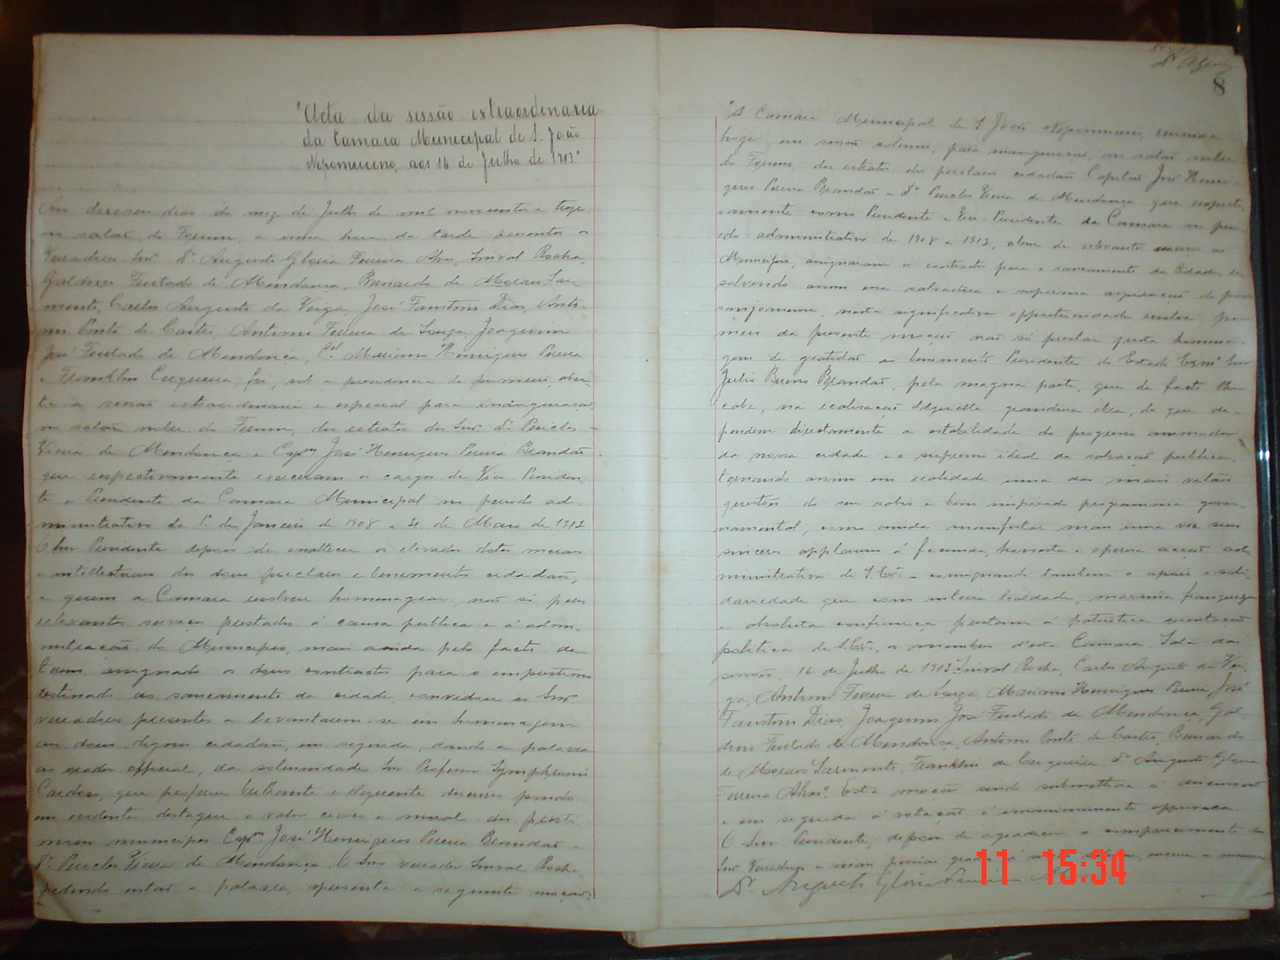 "Acta da sessão extraordinaria
da Camara Municipal de S. João
Nepomuceno, aos 16 de Julho de 1913."
Aos deseseis dias do mez de Julho de mil novecentos e treze
no salão do Forum, a uma hora da tarde presentes os
Vereadores Snrs. Dr. Augusto Gloria Ferreira Alves, Sinval Rocha,
Galdino Furtado de Mendonça, Bernardo de Moraes Sar-
mento, Carlos Augusto da Veiga, José Faustino Dias, Anto-
nio Pinto de Castro, Antonio Ferreira de Souza, Joaquim
José Furtado de Mendonça, Cel. Mariano Henriques Pereira
e Franklin Cerqueira, foi, sob a presidencia do primeiro, aber-
ta a sessão extraordinaria e especial para inauguração,
no salão nobre do Forum, dos retratos dos Snrs. Dr. Pericles
Vieira de Mendonça e Cap.m José Henriques Pereira Brandão
que respectivamente exerceram o cargo de Vice Presiden-
te e Presidente da Camara Municipal no periodo ad-
ministrativo de 1º de Janeiro de 1908 a 31 de Maio de 1912
O Snr Presidente depois de enaltecer os elevados dotes moraes
e intellectuaes dos dous preclaros e benemeritos cidadãos,
a quem a Camara resolveu homenagear, não só pelos
relevantes serviços prestados á causa publica e á admi-
nistração do Municipio, mais ainda pelo facto de
terem assignado os dous contractos para o emprestimo
destinado ao saneamento da cidade, convidou os Snrs
vereadores presentes a levantarem-se em homenagem
aos dous dignos cidadãos, em seguida, dando a palavra
ao orador official, da solemnidade Snr Professor Symphronio
Cardoso, que proferiu brilhante e eloquente discurso pondo
em evidente destaque o valor civico e moral dos presti-
mosos municipes Cap.m José Henriques Pereira Brandão e
Dr. Pericles Vieira de Mendonça. O Snr vereador Sinval Rocha,
pedindo então a palavra, apresenta a seguinte moção:
8
"A Camara Municipal de S. João Nepomuceno, reunida
hoje, em sessão solemne, para inauguração, no salão nobre
do Forum, dos retratos dos preclaros cidadãos Capitão José Henri-
ques Pereira Brandão e Dr. Pericles Vieira de Mendonça que respecti-
vamente como Presidente e Vice-Presidente da Camara no peri-
odo administrativo de 1908 a 1912, alem de relevantes serviços ao
Municipio, assignaram os contractos para o saneamento da Cidade, re-
solvendo assim essa salvadora e suprema aspiração do povo
sanjoanense, nesta significativa opportunidade resolve, por
meio da presente moção, não só prestar justa homena-
gem de gratidão ao benemerito Presidente do Estado Exmo. Snr
Julio Bueno Brandão, pela magna parte, que de facto lhe
cabe, na realisação daquella grandiosa obra, de que de-
pendem directamente a estabilidade do progresso animador
da nossa cidade e o supremo ideal da salvação publica,
tornando assim em realidade uma das mais vitaes
questões do seu sabio e bem inspirado programma gover-
namental, como ainda manifestar mais uma vez seus
sinceros applausos á fecunda, honesta e operosa acção ad-
ministrativa de S. Ex.a consignando tambem o apoio e soli-
dariedade que com inteira lealdade, maxima franqueza
e absoluta confiança prestam á patriotica orientação
politica de S. Ex.a, os membros d'esta Camara. Sala das
sessões, 16 de Julho de 1913. Sinval Rocha, Carlos Augusto da Vei-
ga, Antonio Ferreira de Souza, Mariano Henriques Pereira, José
Faustino Dias, Joaquim José Furtado de Mendonça, Gal-
dino Furtado de Mendonça, Antonio Pinto de Castro, Bernardo
de Moraes Sarmento, Franklin de Cerqueira, Dr. Augusto Gloria
Ferreira Alves". Esta moção sendo submettida a discussão
e em seguida á votação é unanimemente approvada.
O Snr Presidente, depois de agradecer o comparecimento dos
Snrs Vereadores e mais pessoas
Dr. Augusto Gloria
11 15:34